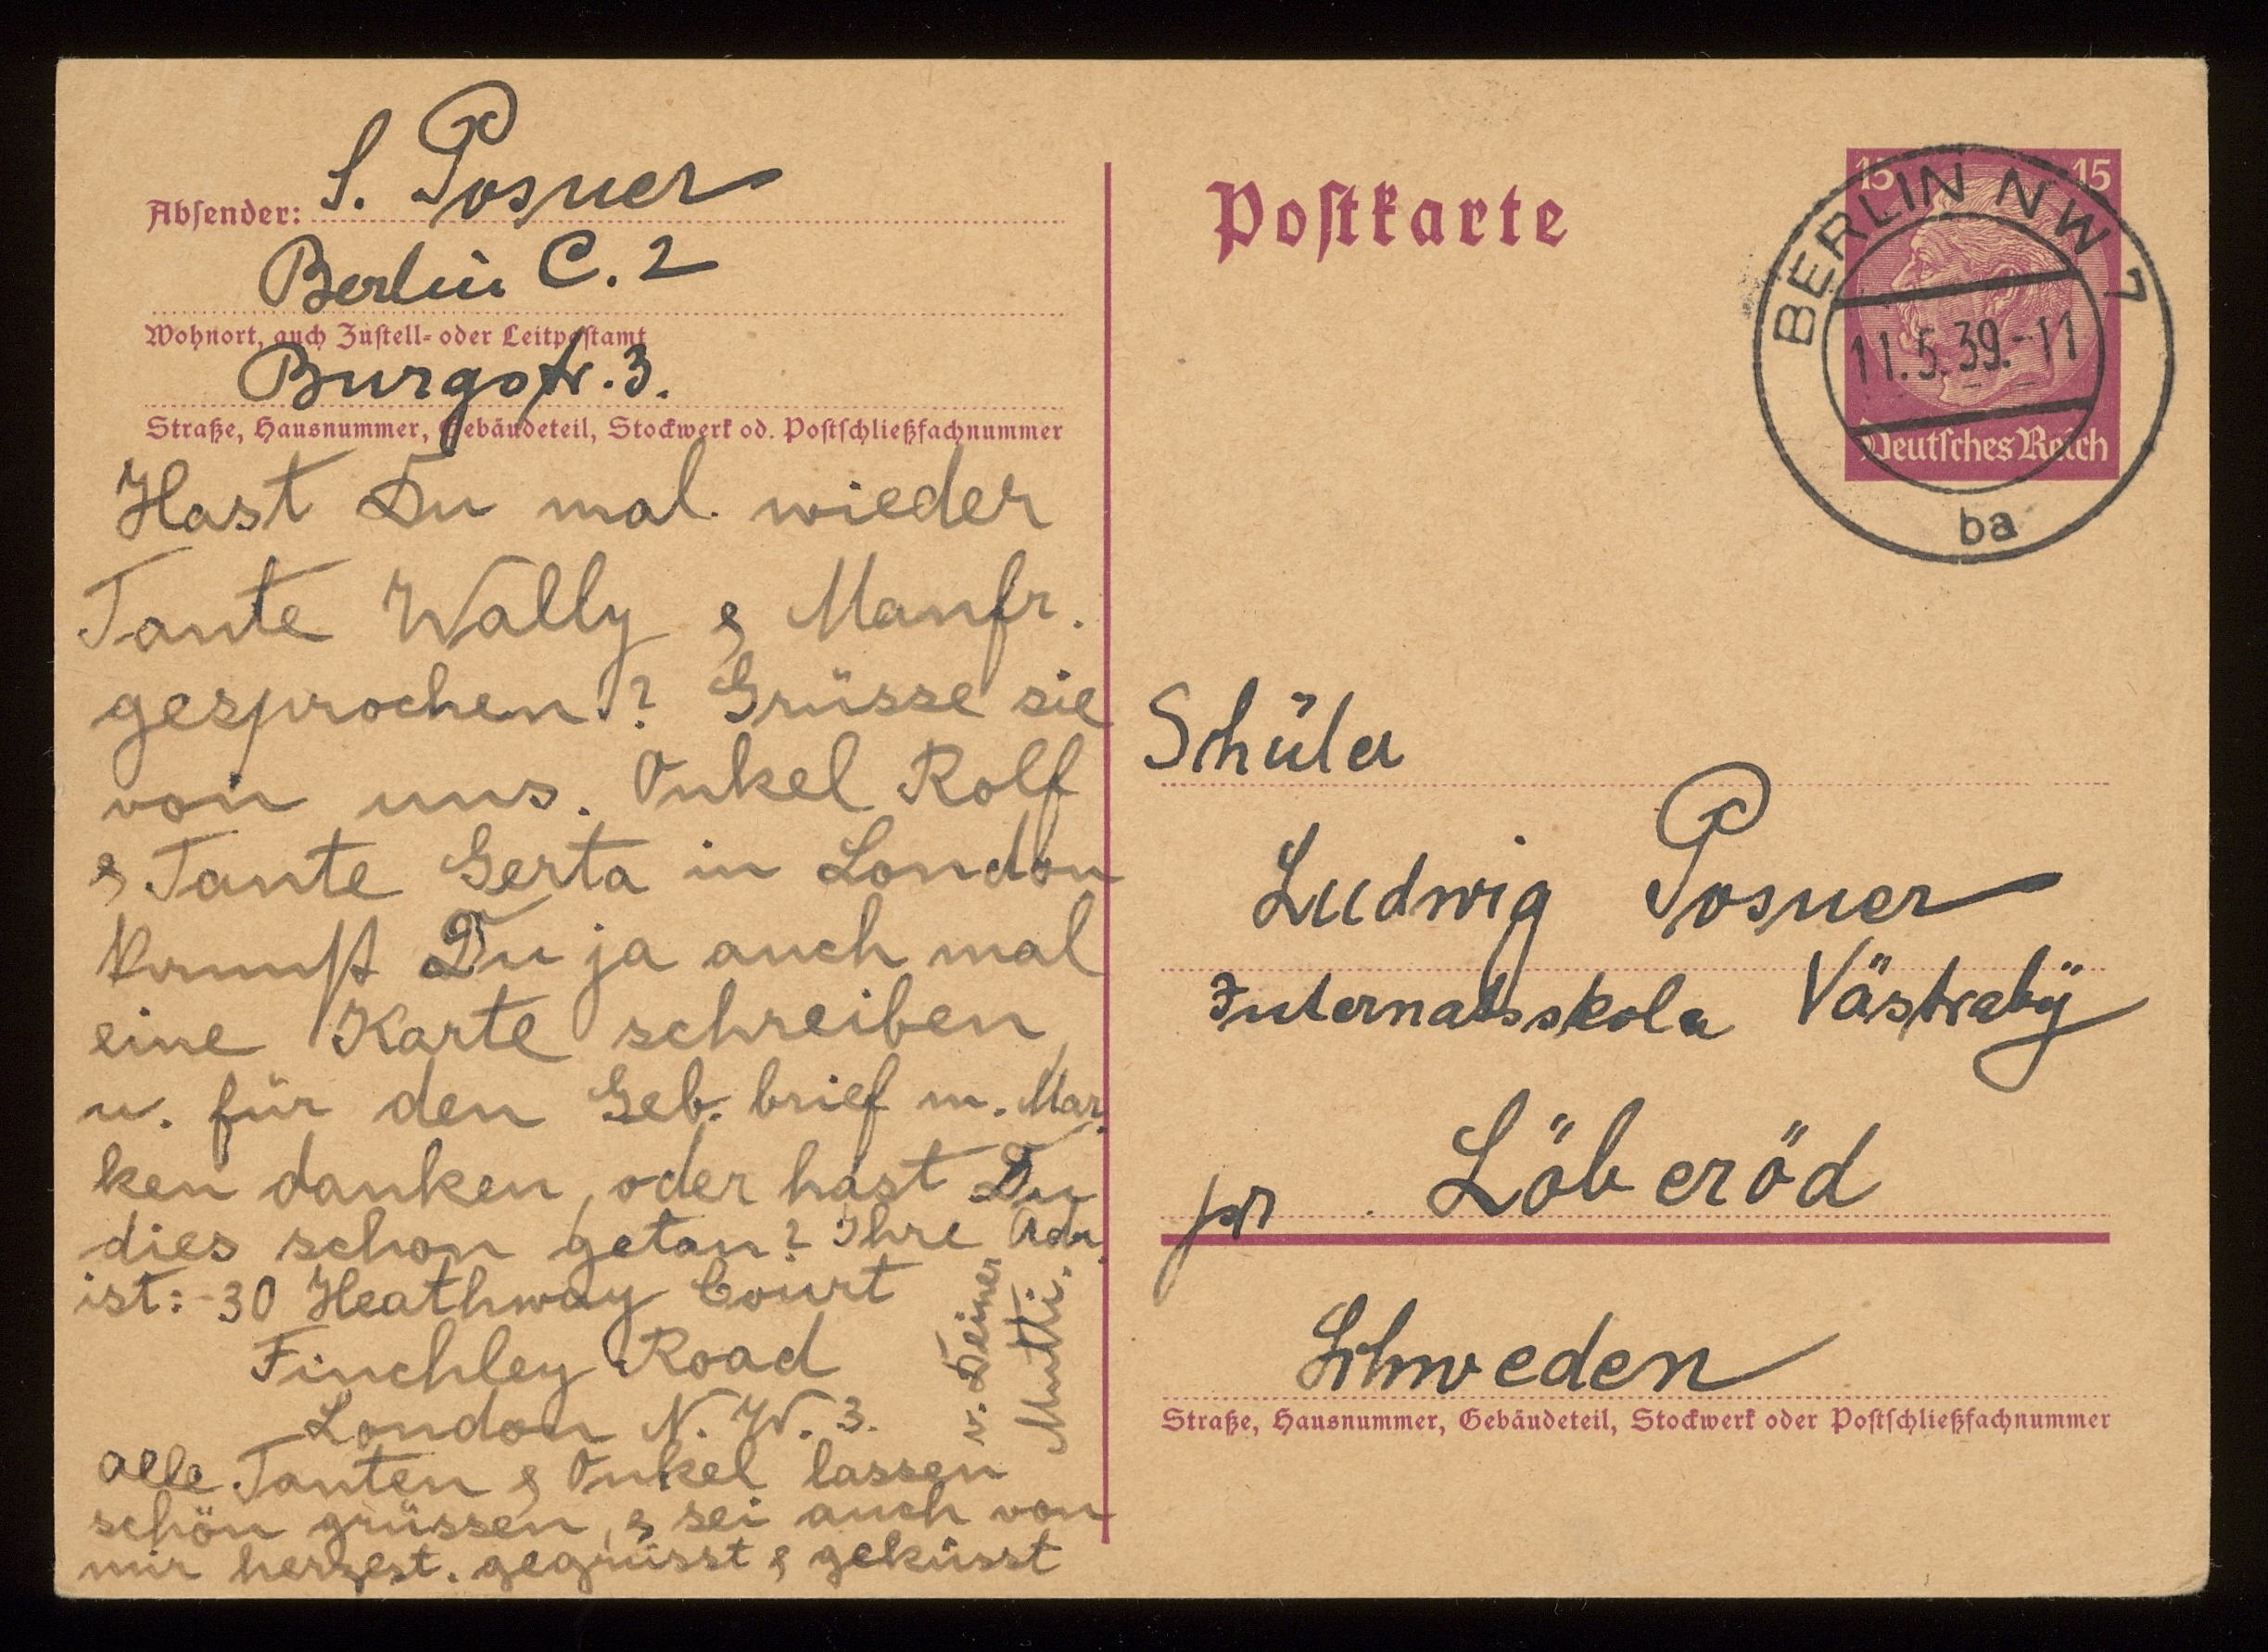 Absender: S. Posner
Berlin C. 2
Wohnort, auch Zustell- oder Leitpostamt
Burgstr. 3.
Straße, Hausnummer, Gebäudeteil, Stockwerk od. Postschließfachnummer
Hast Du mal wieder
Tante Wally & Manfr.
gesprochen? Grüsse sie
von uns. Onkel Rolf
& Tante Gerta in London
kannst Du ja auch mal
eine Karte schreiben
u. für den Geb. brief m. Mar
ken danken, oder hast Du
dies schon getan? Ihre Adr.
ist: 30 Heathway Court
Finchley Road
London N. W. 3.
Alle Tanten & Onkel lassen
schön grüssen, & sei auch von
mir herzlst. gegrüsst & geküsst
v. Deiner
Mutti.
Postkarte
15 15
Deutsches Reich
BERLIN NW 7
11.5.39.-11
ba
Schüler
Ludwig Posner
Internatsskola Västraby
pr Löberöd
Schweden
Straße, Hausnummer, Gebäudeteil, Stockwerk oder Postschließfachnummer